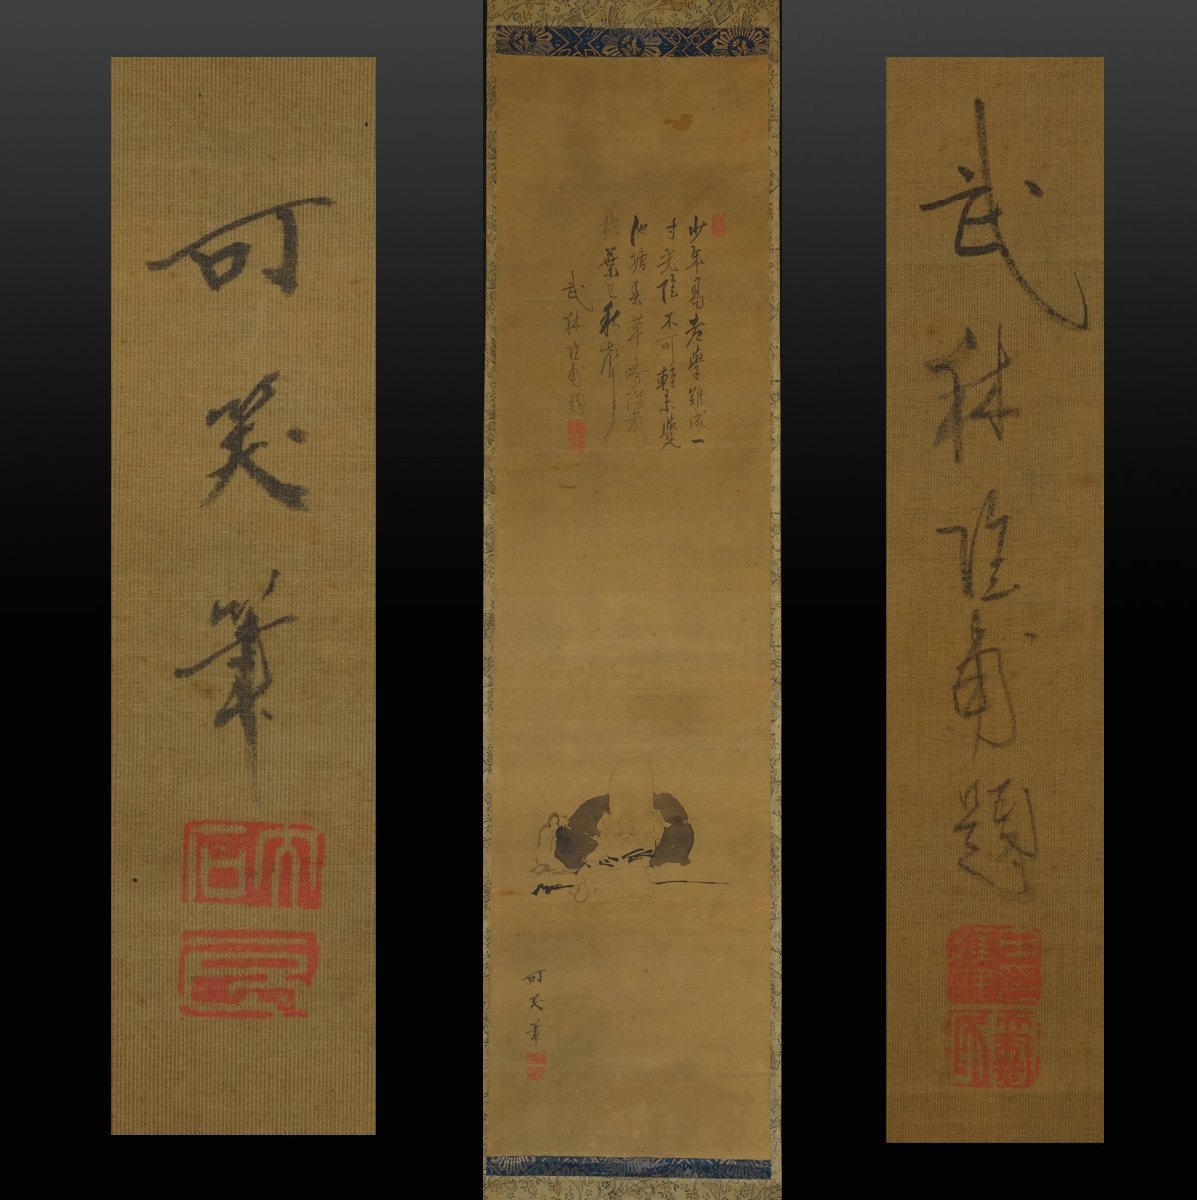 可
笑
筆
少年易老學難成一
寸光陰不可輕未覺
池塘春草夢階前
梧葉已秋聲
武林甫題
可笑筆
武
林
甫
題